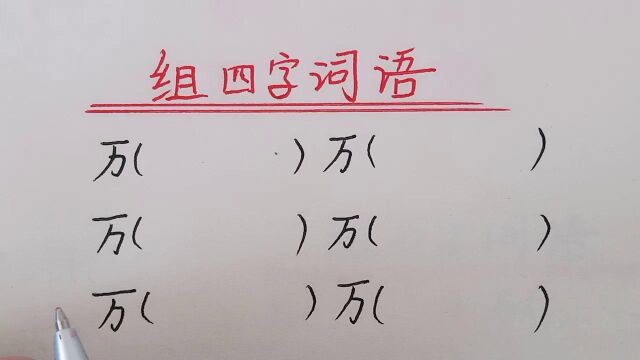 组四字词语
万(　　　)万(　　　)
万(　　　)万(　　　)
万(　　　)万(　　　)